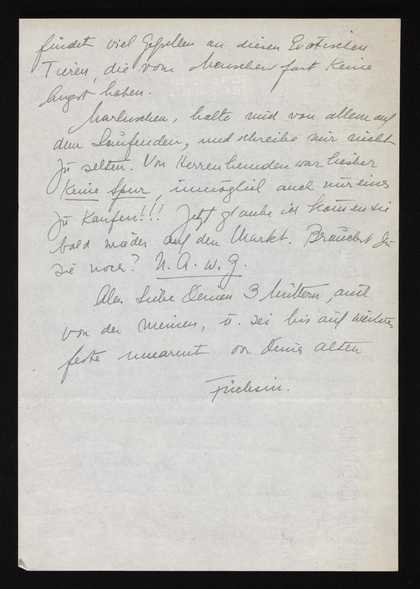 findet viel Gefallen an diesen Exotischen
Tieren, die vom Menschen fast keine
Angst haben.
Marluschen, halte mich von allem auf
dem Laufenden, und schreibe mir nicht
zu selten. Von Herrenhemden war bisher
keine Spur, unmöglich auch nur eins
zu kaufen!!! Jetzt glaube ich kommen sie
bald wieder auf den Markt. Brauchst Du
sie noch? U. A. w. g.
Alles Liebe Deinen 3 Müttern, mit
von der meinen, u. sei bis auf weiteres
feste umarmt von Deiner alten
Füchsin.